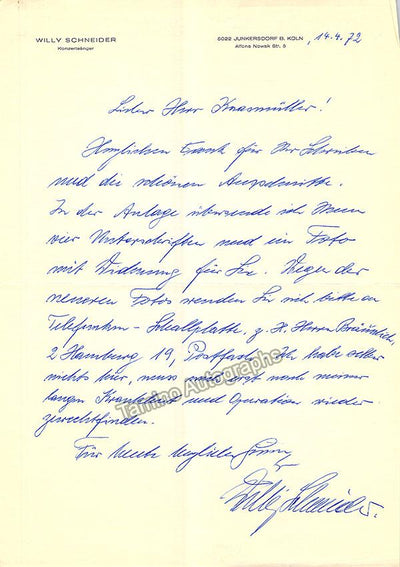 WILLY SCHNEIDER
Konzertsänger
5022 JUNKERSDORF B. KÖLN
Alfons Nowak Str. 5
, 14.4.72
Lieber Herr !
Herzlichen Dank für Ihr Schreiben
und die schönen Ausschnitte.
In der Anlage übersende ich Ihnen
vier Unterschriften und ein Foto
mit Widmung für Sie. Wegen der
neueren Fotos wenden Sie sich bitte an
Telefunken - Schallplatte. z. H. Herrn
2 Hamburg 19, Postfach. Ich habe selber
nichts hier, muss mich erst nach meiner
langen Krankheit und Operation wieder
zurechtfinden.
Für heute herzliche Grüsse
Ihr
Willy Schneider.
Tamino Autographs